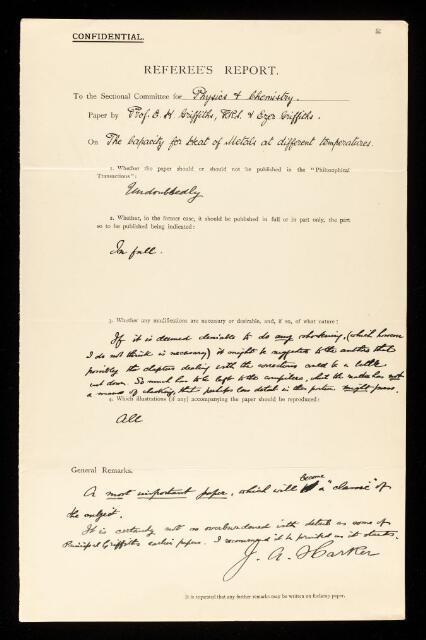 CONFIDENTIAL.
REFEREE'S REPORT.
To the Sectional Committee for Physics & Chemistry.
Paper by Prof. E. H. Griffiths, F.R.S. & Ezer Griffiths.
On The Capacity for Heat of Metals at different temperatures.
1. Whether the paper should or should not be published in the "Philosophical
Transactions":
Undoubtedly
2. Whether, in the former case, it should be published in full or in part only, the part
so to be published being indicated:
In full.
3. Whether any modifications are necessary or desirable, and, if so, of what nature:
If it is deemed desirable to do any shortening, (which however
I do not think is necessary) it might be suggested to the authors that
possibly the chapters dealing with the corrections could be a little
cut down. So much has to be left to the compilers, that the reader has not
a means of checking, that perhaps less detail in this portion might
4. Which illustrations (if any) accompanying the paper should be reproduced:
All
General Remarks.
A most important paper, which will become a "classic" of
the subject.
It is certainly not so overburdened with details as some of
Principal Griffiths earlier papers. I recommend it be printed as it stands.
J. A. Harker
It is requested that any further remarks may be written on foolscap paper.